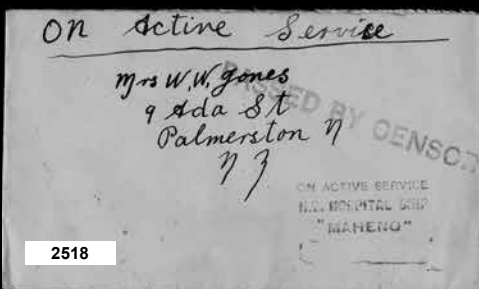 On Active Service
Mrs W. W. Jones
9 Ada St
Palmerston N
N Z
PASSED BY CENSOR
ON ACTIVE SERVICE
H.S. HOSPITAL SHIP
"MAHENO"
2518